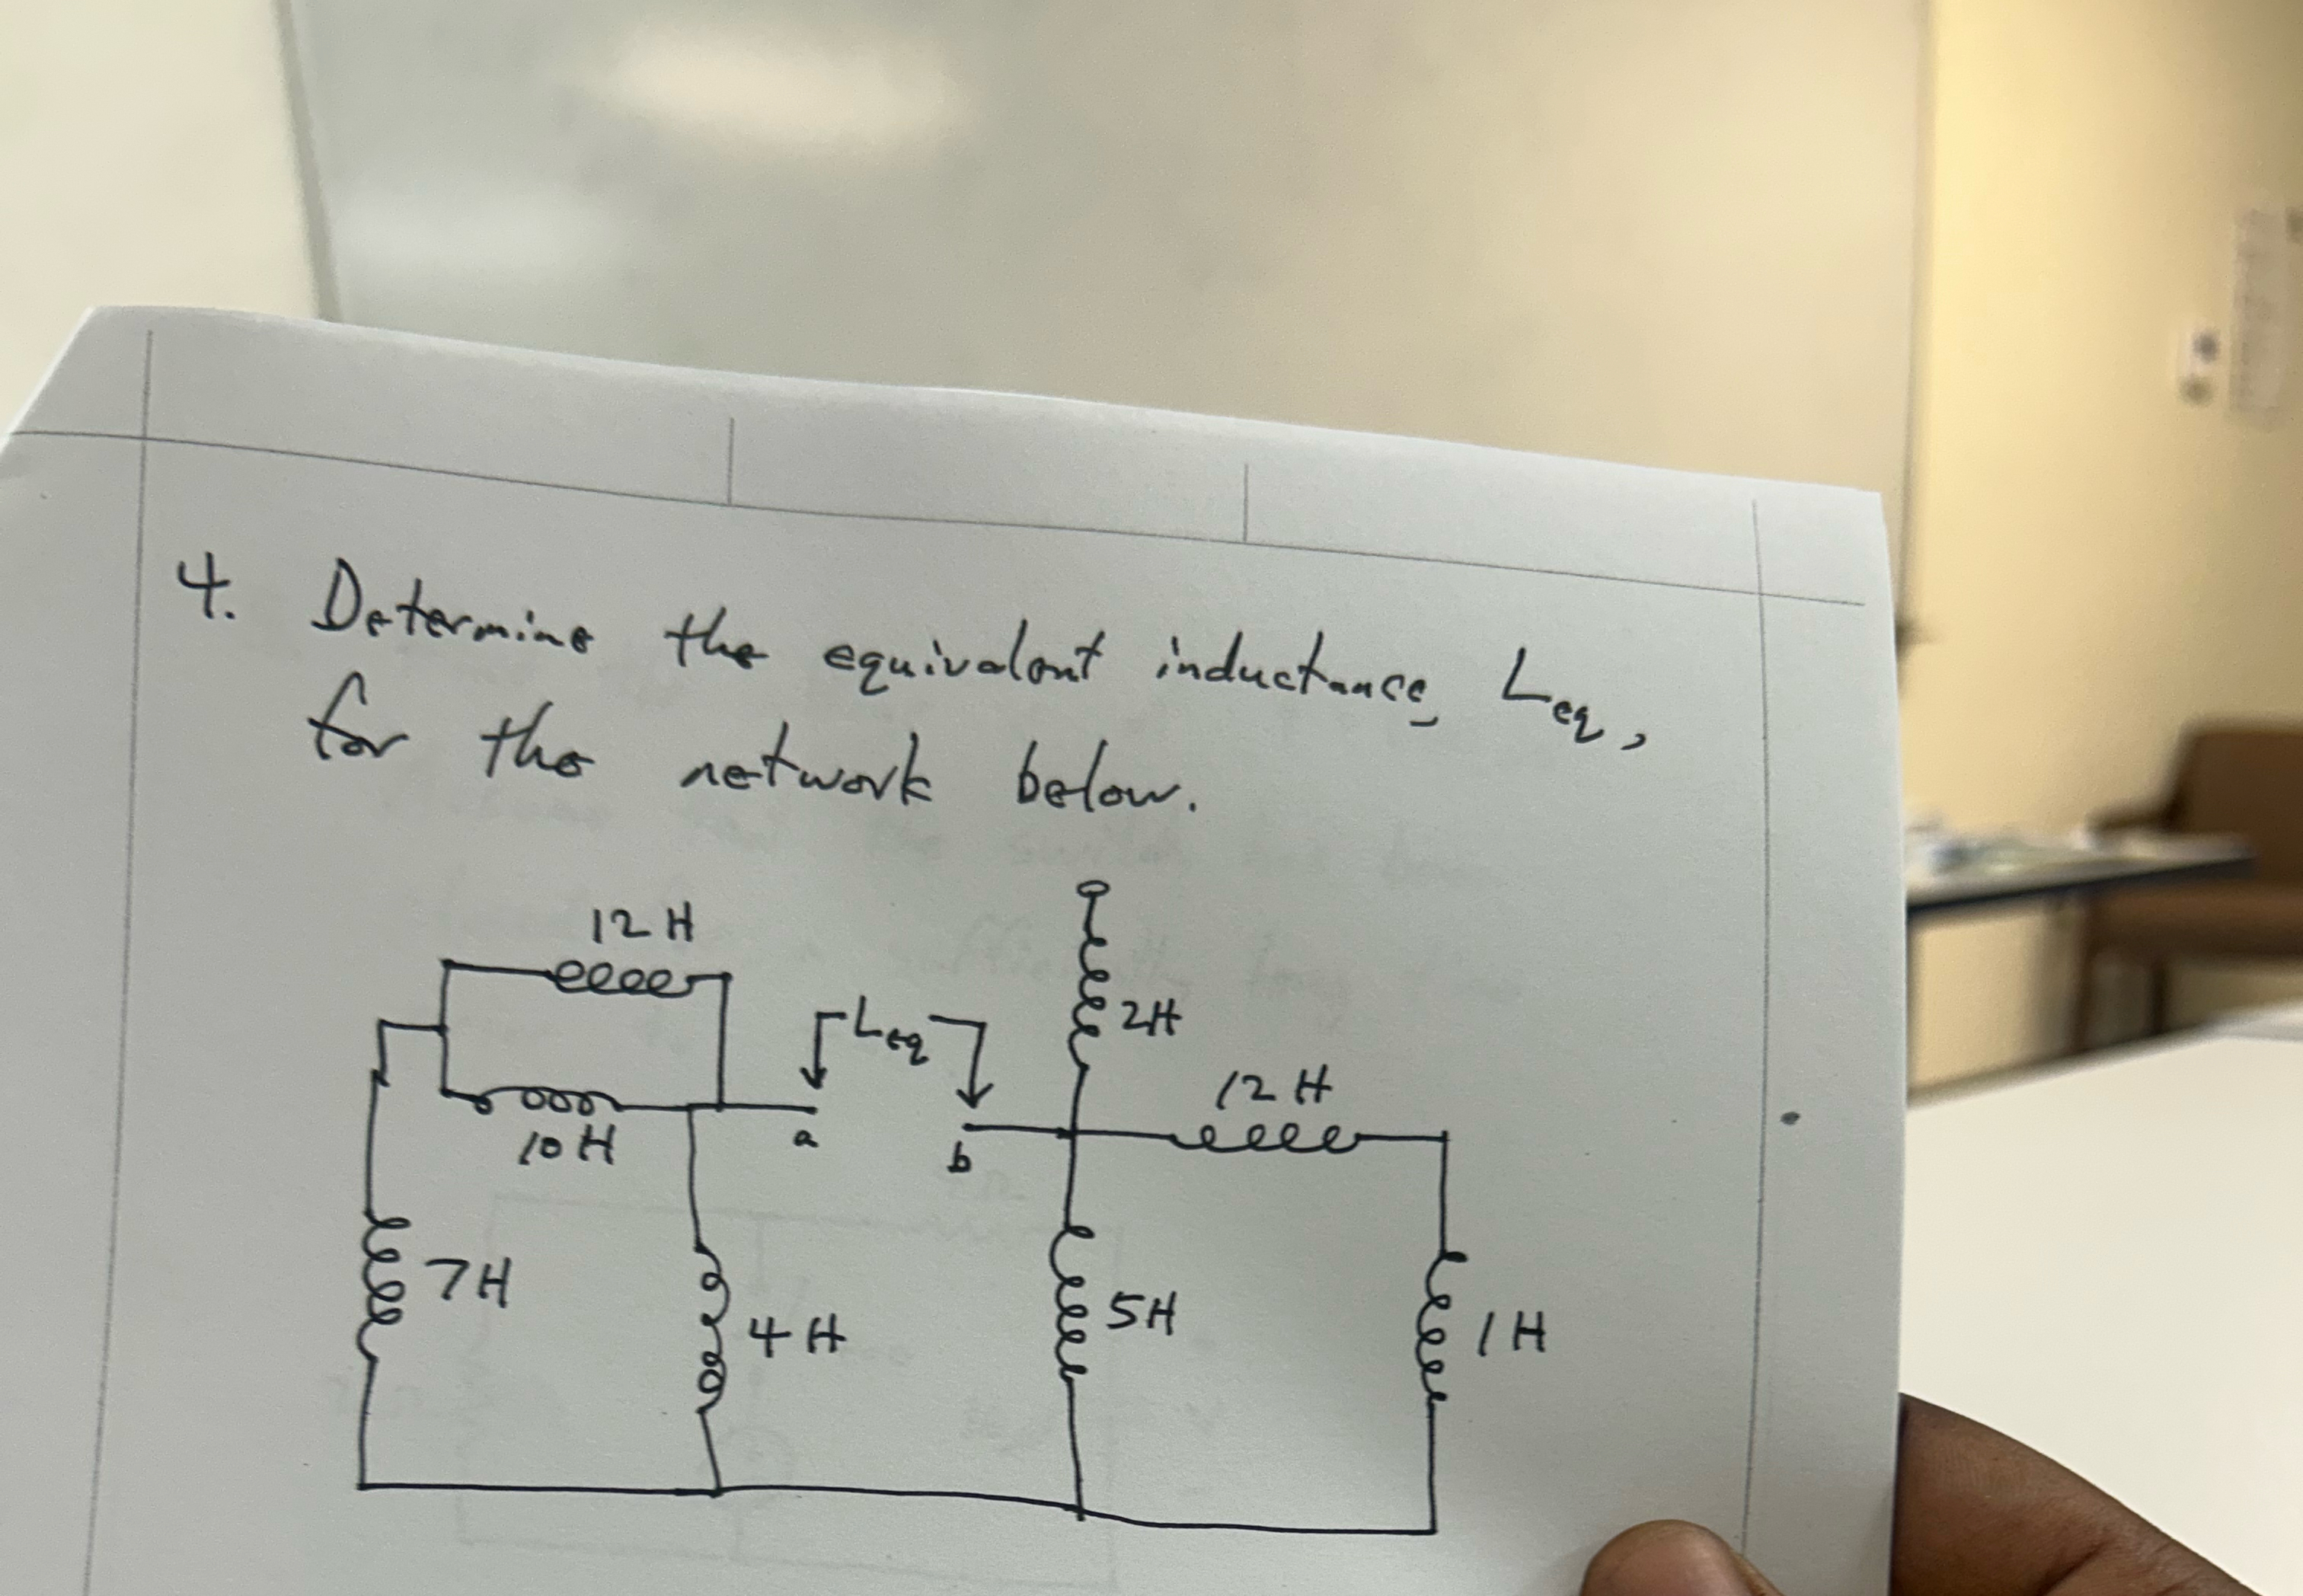 4. Determine the equivalent inductance, Leq,
for the network below.
12 H
Leq
2H
12 H
a
b
10 H
7H
4 H
5H
1 H